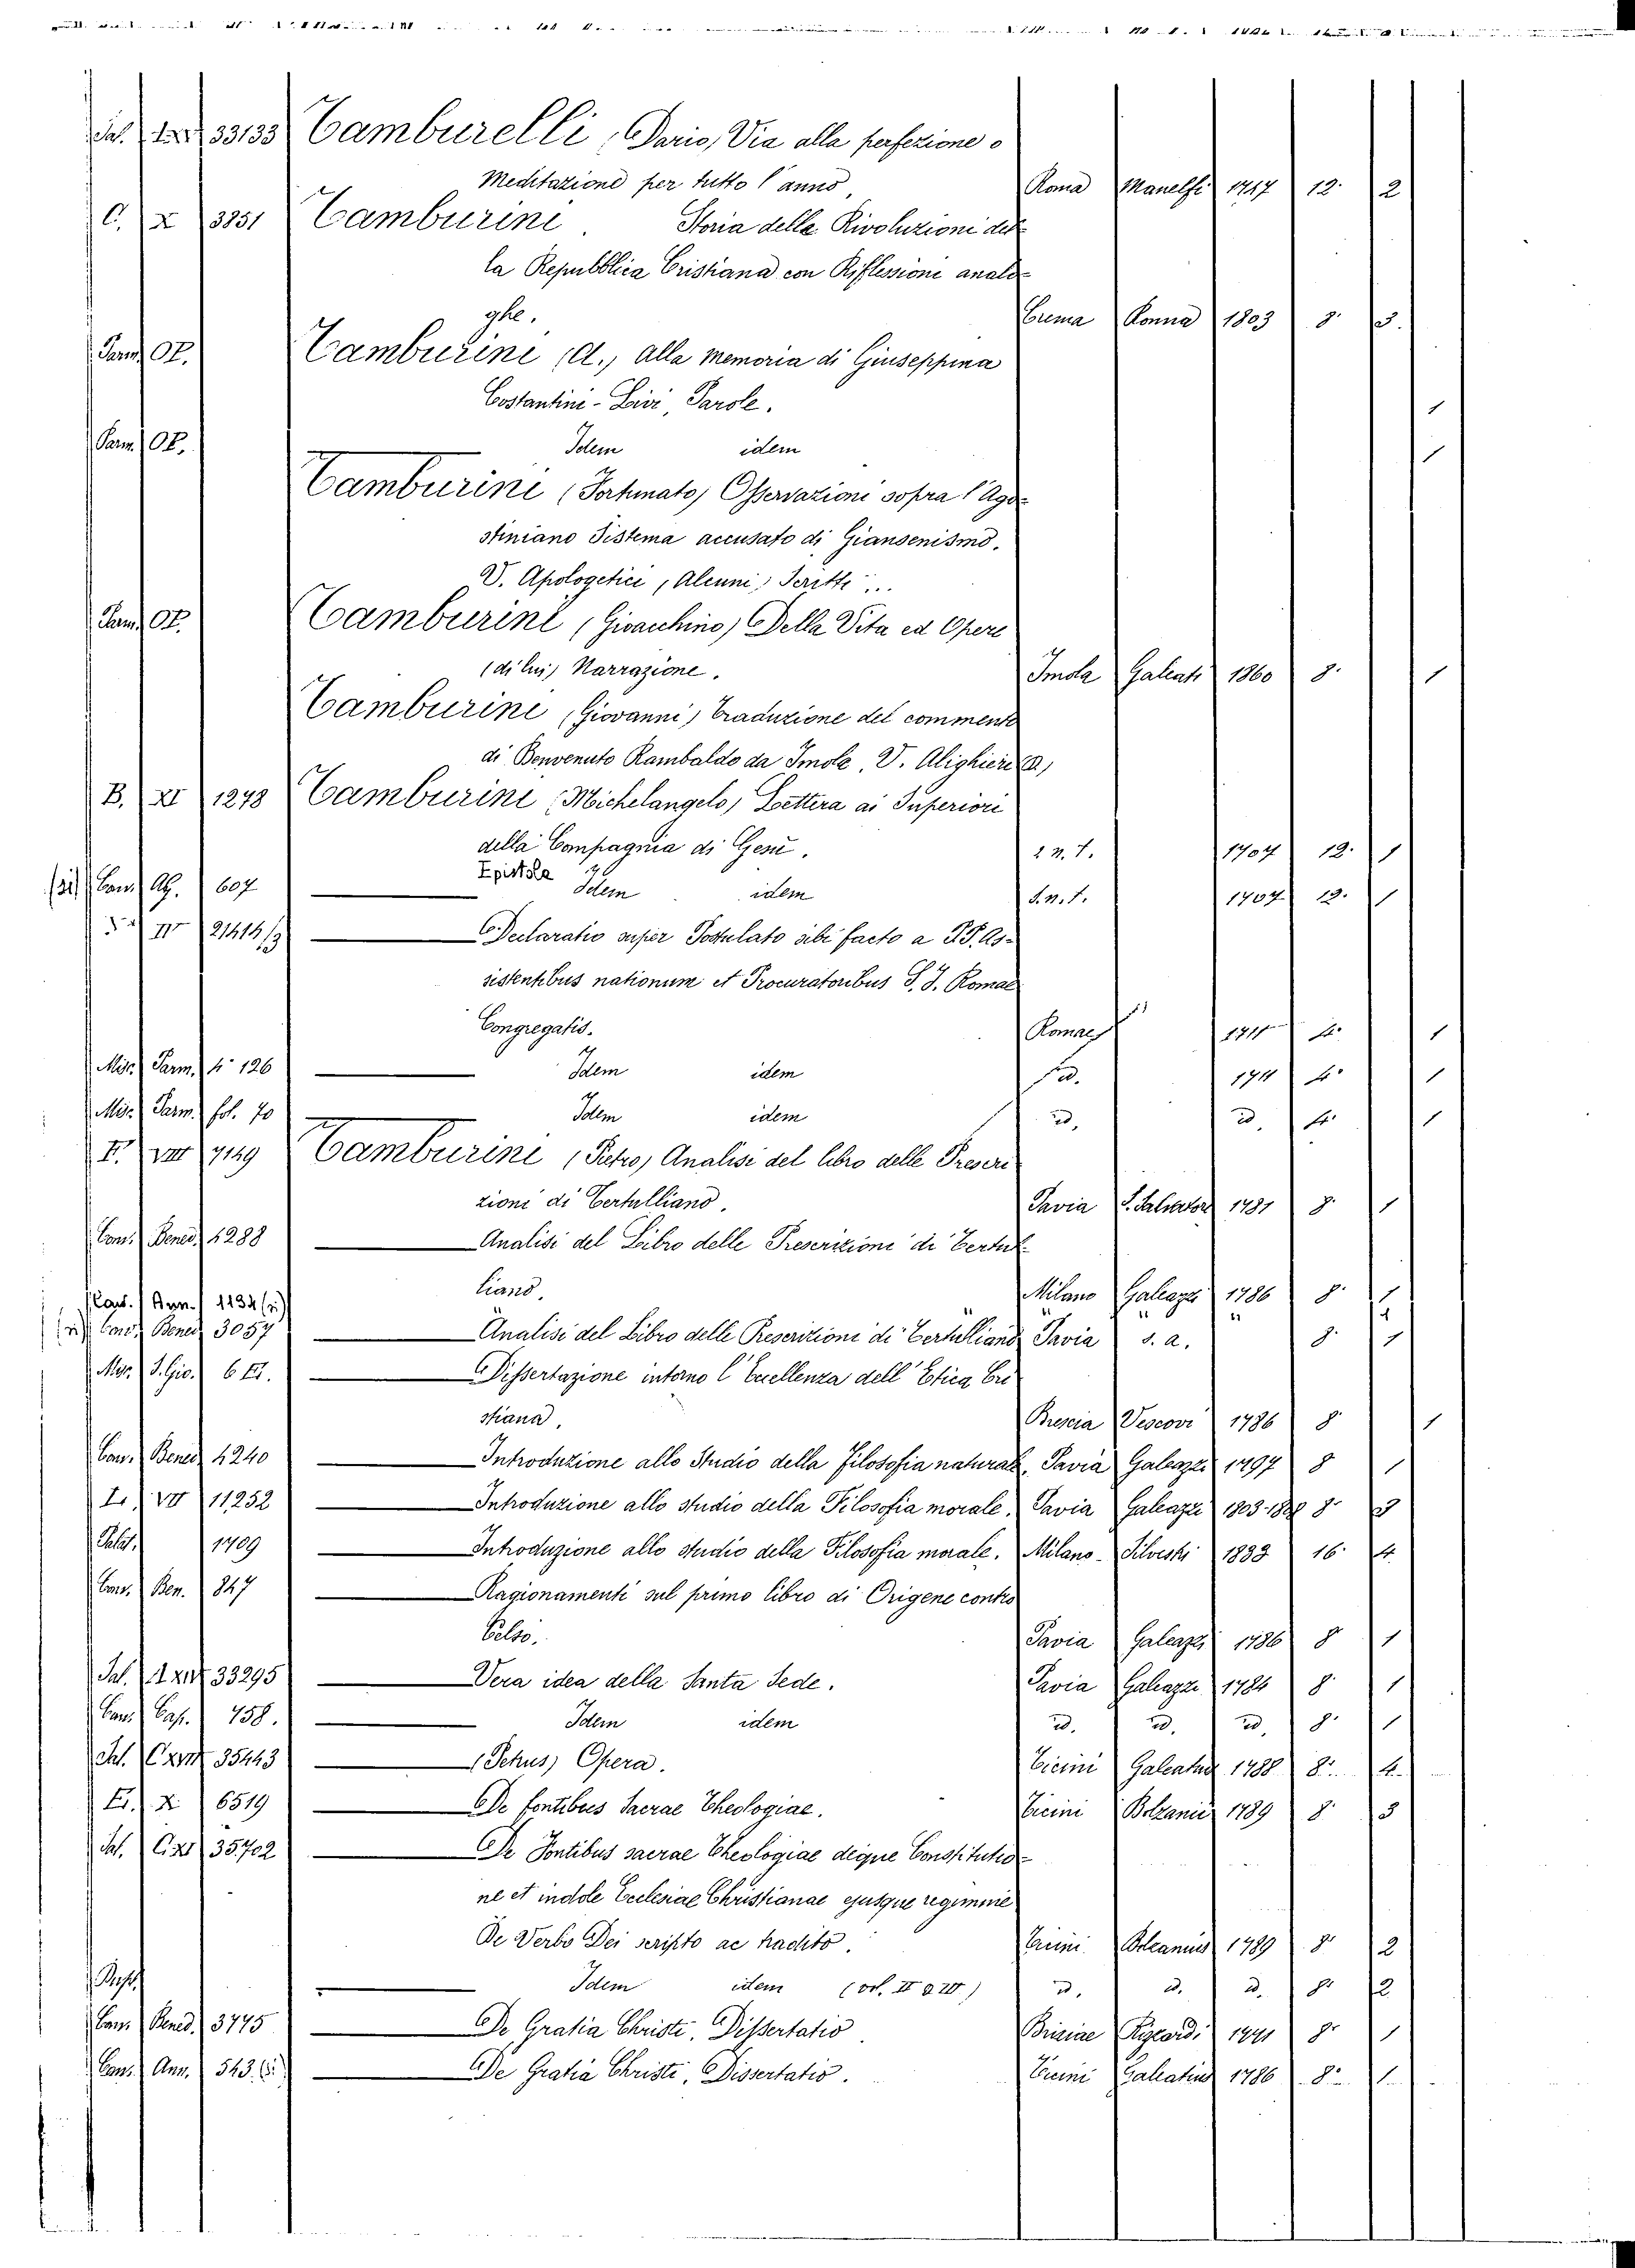 33133 Tamburelli, Dario, Via alla perfezione o
Meditazione per tutto l'anno, Roma Manelfi 1747 12. 2
C. X 3851 Tamburini Storia della Rivoluzioni del
la Repubblica Cristiana con Riflessioni analo
ghe. Crema Ronna 1803 8. 3.
Parm. OP. Tamburini (A.) alla memoria di Giuseppina
Costantini-Livi, Parole. 1
Parm. OP. Idem idem 1
Tamburini (Fortunato) Osservazioni sopra l'Ago
stiniano Sistema accusato di Giansenismo.
V. Apologetici, (Alcuni) Scritti...
Parm. OP. Tamburini (Gioacchino) Della Vita ed Opere
(di lui) Narrazione. Imola Galeati 1860 8. 1
Tamburini (Giovanni) Traduzione del commento
di Benvenuto Rambaldo da Imola. V. Alighieri D.)
B. XI 1248 Tamburini (Michelangelo) Lettera ai Superiori
della Compagnia di Gesù. s. n. t. 1707 12. 1
Epistola
607 Idem idem s. n. t. 1707 12. 1
IV 21414/3 Declaratio super Postulato sibi facto a P.P. As-
sistentibus nationum et Procuratoribus S. J. Romae
Congregatis. Romae 1711 4. 1
Misc. Parm. 4° 126 Idem idem id. 1711 4° 1
Misc. Parm. fol. 70 Idem idem id. id. 4. 1
F. VIII 7149 Tamburini (Pietro) Analisi del libro delle Prescri
zioni di Tertulliano. Pavia S. Salvatore 1781 8. 1
Conv. Bened. 4288 Analisi del Libro delle Prescrizioni di Tertul
liano. Milano Galeazzi 1786 8. 1
Cav. Ann. 1134 (2)
Conv. Bened. 3057 Analisi del Libro delle Prescrizioni di Tertulliano Pavia s. a. 8. 1
Misc. S. Gio. 6 Dissertazione intorno l'Eccellenza dell'Etica Cri
stiana. Brescia Vescovi 1786 8 1
Conv. Bened. 4240 Introduzione allo Studio della Filosofia naturale, Pavia Galeazzi 1797 8 1
L. VII 11252 Introduzione allo studio della Filosofia morale. Pavia Galeazzi 1803-1808 8.
Palat. 1709 Introduzione allo studio della Filosofia morale. Milano Silvestri 1833 16. 4.
Conv. Ben. 847 Ragionamenti sul primo libro di Origene contro
Celso. Pavia Galeazzi 1786 8 1
33295 Vera idea della Santa Sede. Pavia Galeazzi 1784 8. 1
Conv. Cap. 758. Idem idem id. id. id. 8. 1
35443 (Petrus) Opera. Ticini Galeatius 1788 8. 4.
E. X 6519 De fontibus Sacrae Theologiae. Ticini Bolzanii 1789 8. 3
35702 De Fontibus sacrae Theologiae deque Constitutio-
ne et indole Ecclesiae Christianae ejusque regimine
De Verbo Dei scripto ac tradito. Ticini Bolzanius 1789 8. 2
Idem idem id. id. id. 8. 2
Conv. Bened. 3775 De Gratia Christi, Dissertatio Brixiae Rizzardi 8. 1
Conv. Ann. 543. De Gratia Christi, Dissertatio. Ticini Galeatius 1786 8. 1